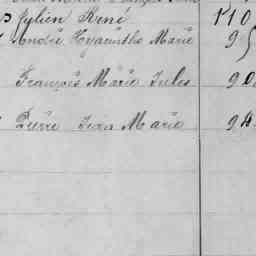 René 110
André Hyacinthe Marie 9
François Marie Jules 90
Pierre Jean Marie 94